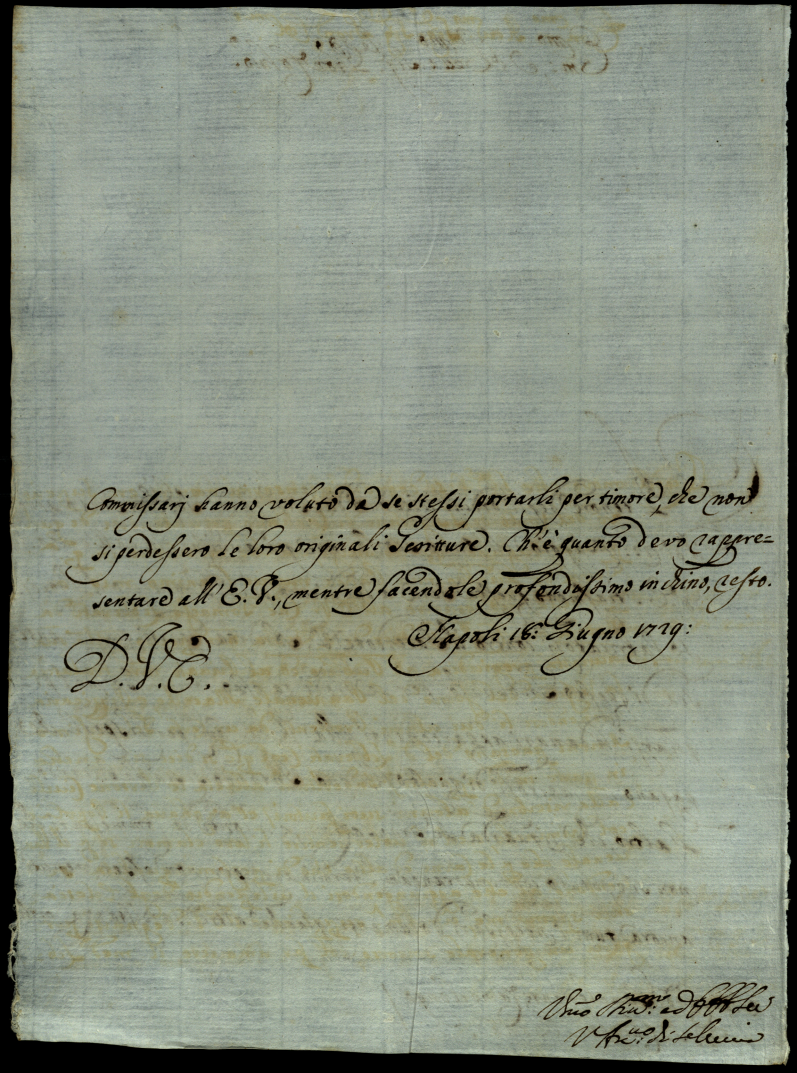 Commissarj hanno voluto da se stessi portarli per timore, che non
si perdessero le loro originali Scritture. Ch'è quanto devo rappre=
sentare all'E. V., mentre facendole profondissimo inchino, resto.
Napoli 18: Giugno 1729:
D. V. E.